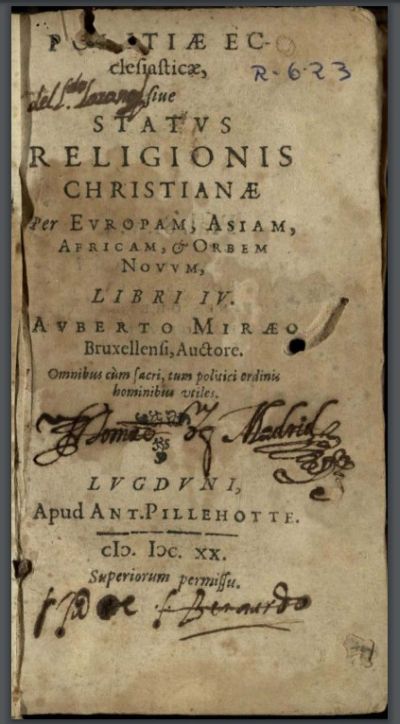 POLITIÆ EC-
clesiasticæ,
R-6-23
del Ldo Lozano
siue
STATVS
RELIGIONIS
CHRISTIANÆ
Per EVROPAM, ASIAM,
AFRICAM, & ORBEM
NOVVM,
LIBRI IV.
AVBERTO MIRÆO
Bruxellensi, Auctore.
Omnibus cùm sacri, tum politici ordinis
hominibus vtiles.
Madrid
LVGDVNI,
Apud ANT. PILLEHOTTE.
cIↃ. IↃc. XX.
Superiorum permissu.
Bernardo